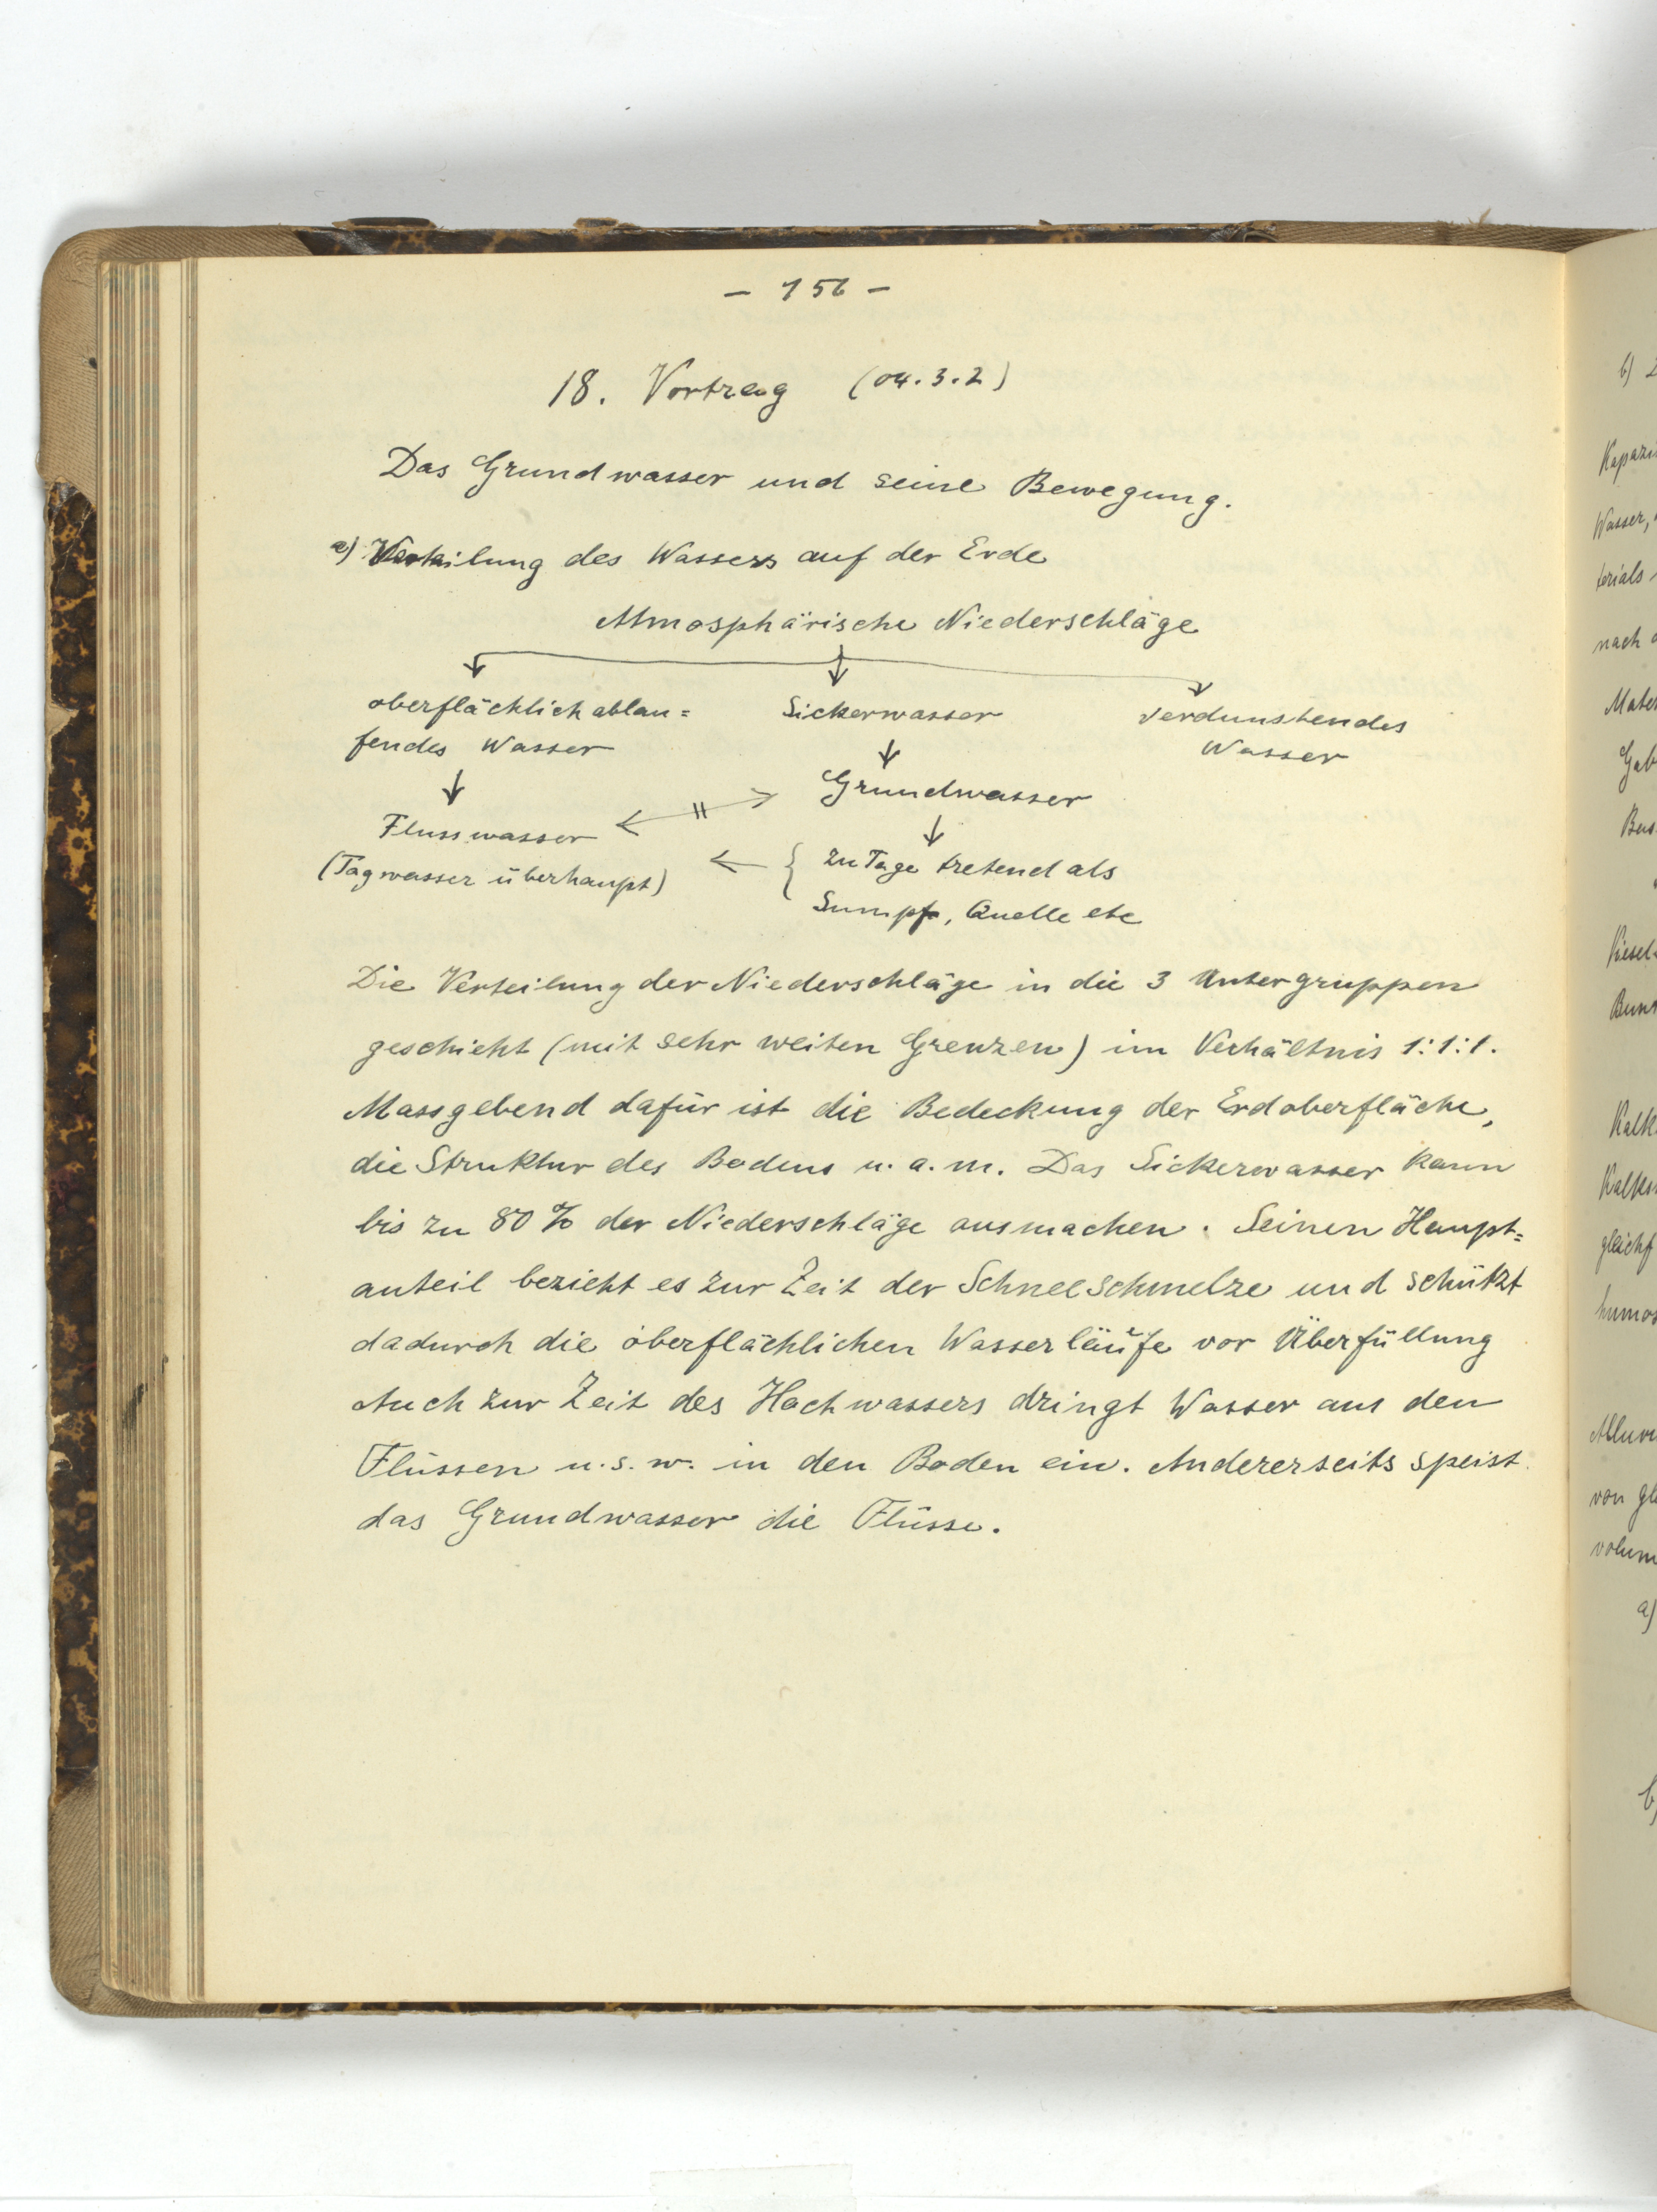 - 156 -
18. Vortrag (04.3.2)
Das Grundwasser und seine Bewegung.
a) Verteilung des Wassers auf der Erde
Atmosphärische Niederschläge
oberflächlich ablau= Sickerwasser Verdunstendes
fendes Wasser Wasser
Grundwasser
Flusswasser
(Tagwasser überhaupt) { zu Tage tretend als
Sumpf, Quelle etc
Die Verteilung der Niederschläge in die 3 Untergruppen
geschieht (mit sehr weiten Grenzen) im Verhältnis 1:1:1.
Massgebend dafür ist die Bedeckung der Erdoberfläche,
die Struktur des Bodens u. a. m. Das Sickerwasser kann
bis zu 80 % der Niederschläge ausmachen. Seinen Haupt=
anteil bezieht es zur Zeit der Schneeschmelze und schützt
dadurch die oberflächlichen Wasserläufe vor Überfüllung
Auch zur Zeit des Hochwassers dringt Wasser aus den
Flüssen u. s. w. in den Boden ein. Andererseits speist
das Grundwasser die Flüsse.
b)
Wasser,
nach
a)
b)